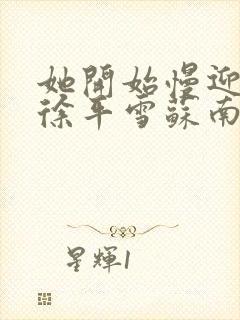 她開始慢迎
徐平雪蘇南
星輝1